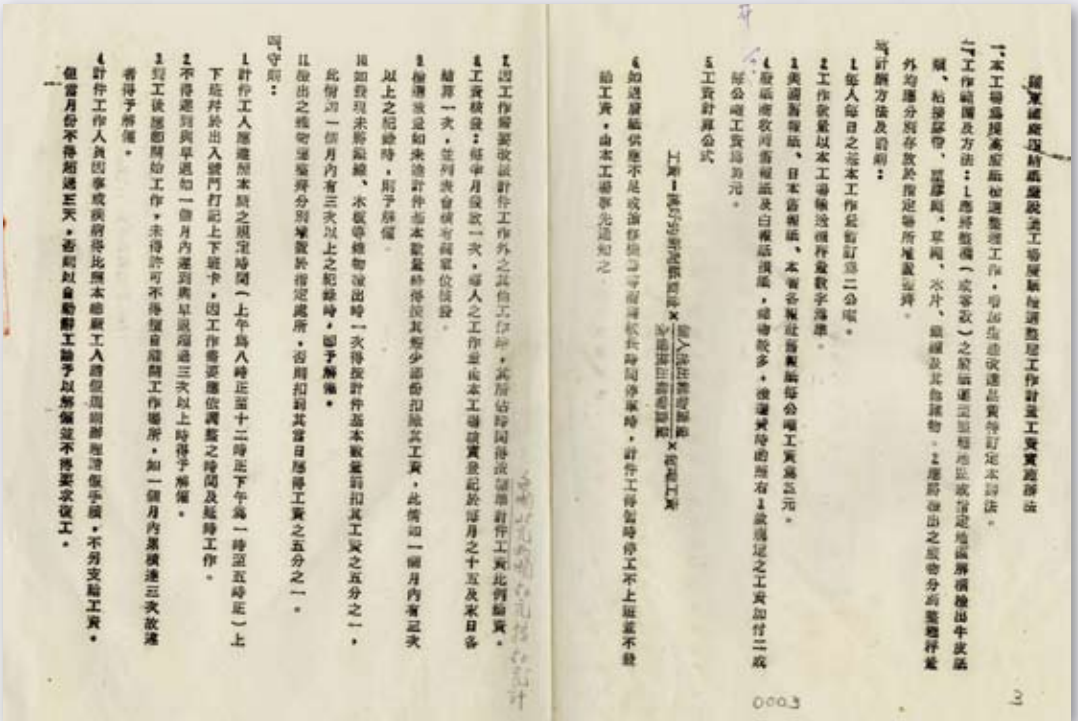 羅東總廠四結紙廠脫墨工場廢紙檢調整理工作計量工資實施辦法
一、本工場為提高廢紙檢調整理工作,增加生產改進品質特訂定本辦法。
二、工作範圍及方法:1.應將整捆(或零散)之廢紙運至整理地點或指定地區解捆檢出牛皮紙
類、粘接膠帶、塑膠類、草繩、木片、鐵線及其他雜物。2.應將檢出之廢物分別整理秤量
外均應分別存放於指定場所堆置整齊。
三、計酬方法及罰則:
1.每人每日之基本工作量暫訂為二公噸。
2.工作數量以本工場輸送機秤量數字為準。
3.美國舊報紙、日本舊報紙、本省各報社舊報紙每公噸工資為 元。
4.廢紙商收购舊報紙及白報紙損紙,雜物較多,檢選費時除照右3款規定之工資加付二成
每公噸工資為 元。
5.工資計算公式
6.如遇廢紙供應不足或檢修機器等需要較長時間停車時,計件工得暫時停工不上班並不發
給工資,由本工場事先通知之。
7.因工作需要改派計件工作外之其他工作時,其所佔時間得按標準計件工資比例給資。
8.工資核發:每半月發放一次,每人之工作量由本工場核實登記於每月之十五及末日各
結算一次,並列表會核有關單位核發。
9.檢選數量如未達計件基本數量時得按其短少部份扣除其工資,此情如一個月內有三次
以上之紀錄時,則予解僱。
10.如發現未將鐵線、木板等雜物檢出時一次得按計件基本數量罰扣其工資之五分之一,
此情如一個月內有三次以上之紀錄時,即予解僱。
11.檢出之雜物須整齊分別堆置於指定處所,否則扣罰其當日應得工資之五分之一。
四、守則:
1.計件工人應遵照本廠之規定時間(上午為八時正至十二時正下午為一時至五時正)上
下班并於出入號門打記上下班卡,因工作需要應依調整之時間及延時工作。
2.不得遲到與早退如一個月內遲到與早退超過三次以上時得予解僱。
3.到工後應即開始工作,未得許可不得擅自離開工作場所,如一個月內累積達三次故違
者得予解僱。
4.計件工作人員因事或疾病得比照本總廠工人請假規則辦理請假手續,不另支給工資。
但當月份不得超過三天,否則以自動辭工論予以解僱並不得要求復工。
0003
3